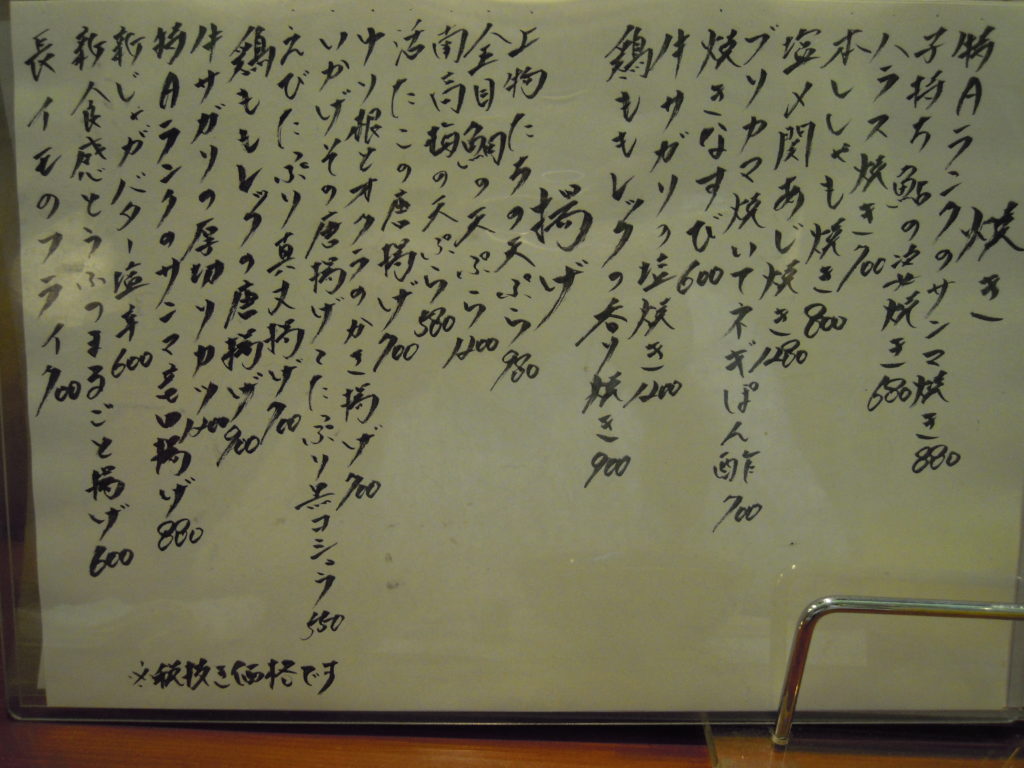 焼き
特Aランクのサンマ焼き 880
子持ち鮎の姿焼き 680
ハラス焼き 700
本ししゃも焼き 800
塩〆関あじ焼き 1280
ブリカマ焼いてネギぽん酢 700
焼きなすび 600
牛サガリの塩焼き 1200
鶏ももレッグの香り焼き 900
揚げ
上物たちの天ぷら 980
金目鯛の天ぷら 1200
南高梅の天ぷら 580
活たこの唐揚げ 700
ゆり根とオクラのかき揚げ 700
いかげその唐揚げ たっぷり黒コショウ 550
えびたっぷり真丈揚げ 700
鶏ももレッグの唐揚げ 900
牛サガリの厚切りカツ 1200
特Aランクのサンマ辛口揚げ 880
新じゃがバター塩辛 600
新食感とうふのまるごと揚げ 600
長イモのフライ 700
※税抜き価格です